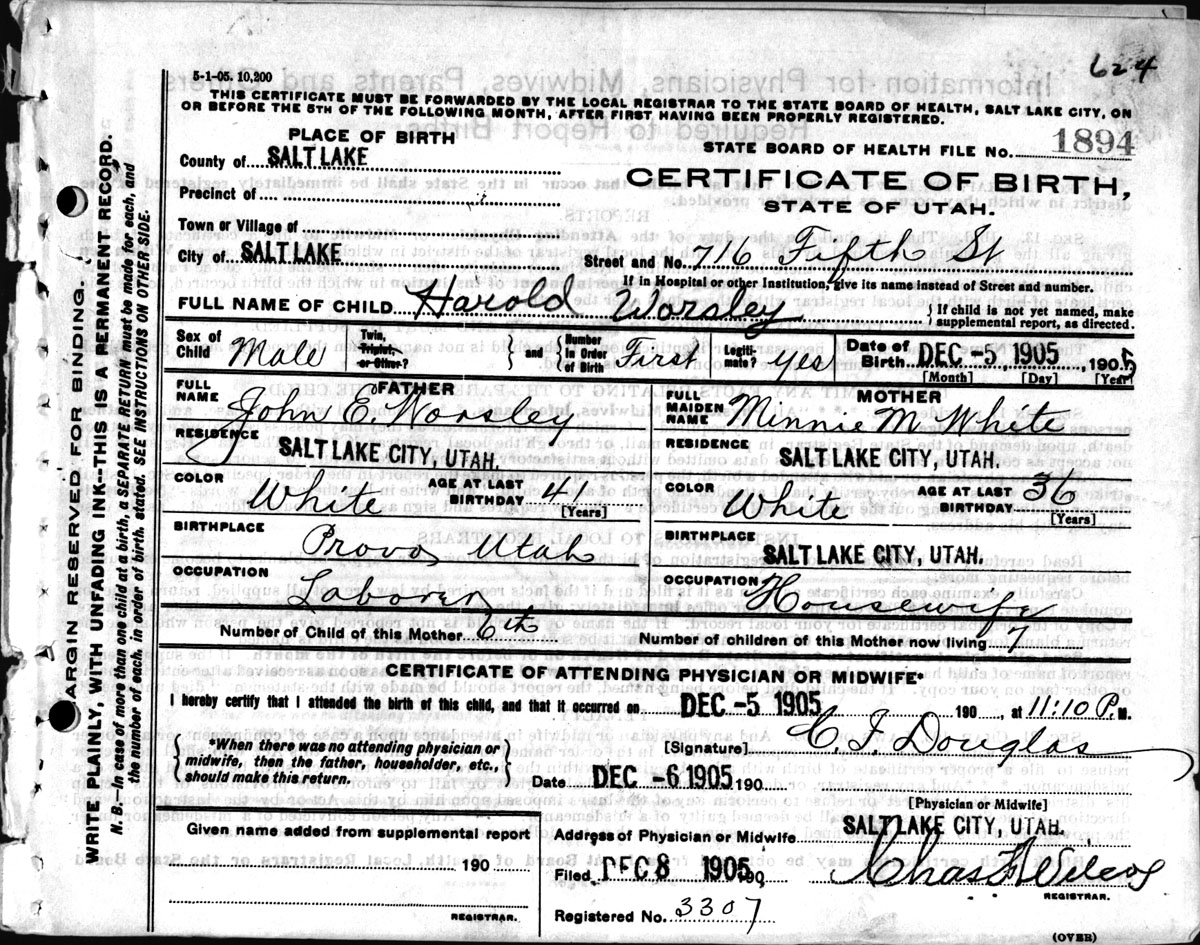 624
5-1-05. 10,200
THIS CERTIFICATE MUST BE FORWARDED BY THE LOCAL REGISTRAR TO THE STATE BOARD OF HEALTH, SALT LAKE CITY, ON
OR BEFORE THE 5TH OF THE FOLLOWING MONTH, AFTER FIRST HAVING BEEN PROPERLY REGISTERED.
PLACE OF BIRTH
STATE BOARD OF HEALTH FILE No. 1894
County of SALT LAKE
CERTIFICATE OF BIRTH,
STATE OF UTAH.
Precinct of
Town or Village of
City of SALT LAKE
Street and No. 716 Fifth St
If in Hospital or other Institution, give its name instead of Street and number.
FULL NAME OF CHILD Harold Worsley } If child is not yet named, make supplemental report, as directed.
Sex of Child Male Twin, Triplet, or Other? } and { Number in Order of Birth First Legitimate? yes Date of Birth DEC -5 1905 1905
[Month] [Day] [Year]
FATHER
FULL NAME John E Worsley
RESIDENCE SALT LAKE CITY, UTAH.
COLOR White AGE AT LAST BIRTHDAY 41 [Years]
BIRTHPLACE Provo, Utah
OCCUPATION Laborer
Number of Child of this Mother
MOTHER
FULL MAIDEN NAME Minnie M White
RESIDENCE SALT LAKE CITY, UTAH.
COLOR White AGE AT LAST BIRTHDAY 36 [Years]
BIRTHPLACE SALT LAKE CITY, UTAH.
OCCUPATION Housewife
Number of children of this Mother now living 7
CERTIFICATE OF ATTENDING PHYSICIAN OR MIDWIFE*
I hereby certify that I attended the birth of this child, and that it occurred on DEC -5 1905 190 , at 11:10 P. M.
{ *When there was no attending physician or
midwife, then the father, householder, etc.,
should make this return. }
[Signature] C. F. Douglas
Date DEC -6 1905 190
[Physician or Midwife]
Given name added from supplemental report
190
REGISTRAR.
Address of Physician or Midwife SALT LAKE CITY, UTAH.
Filed DEC 8 1905 190 Chas F Wilcox
REGISTRAR.
Registered No. 3307
(OVER)
MARGIN RESERVED FOR BINDING.
WRITE PLAINLY, WITH UNFADING INK--THIS IS A PERMANENT RECORD.
N. B.--In case of more than one child at a birth, a SEPARATE RETURN must be made for each, and
the number of each, in order of birth, stated. SEE INSTRUCTIONS ON OTHER SIDE.